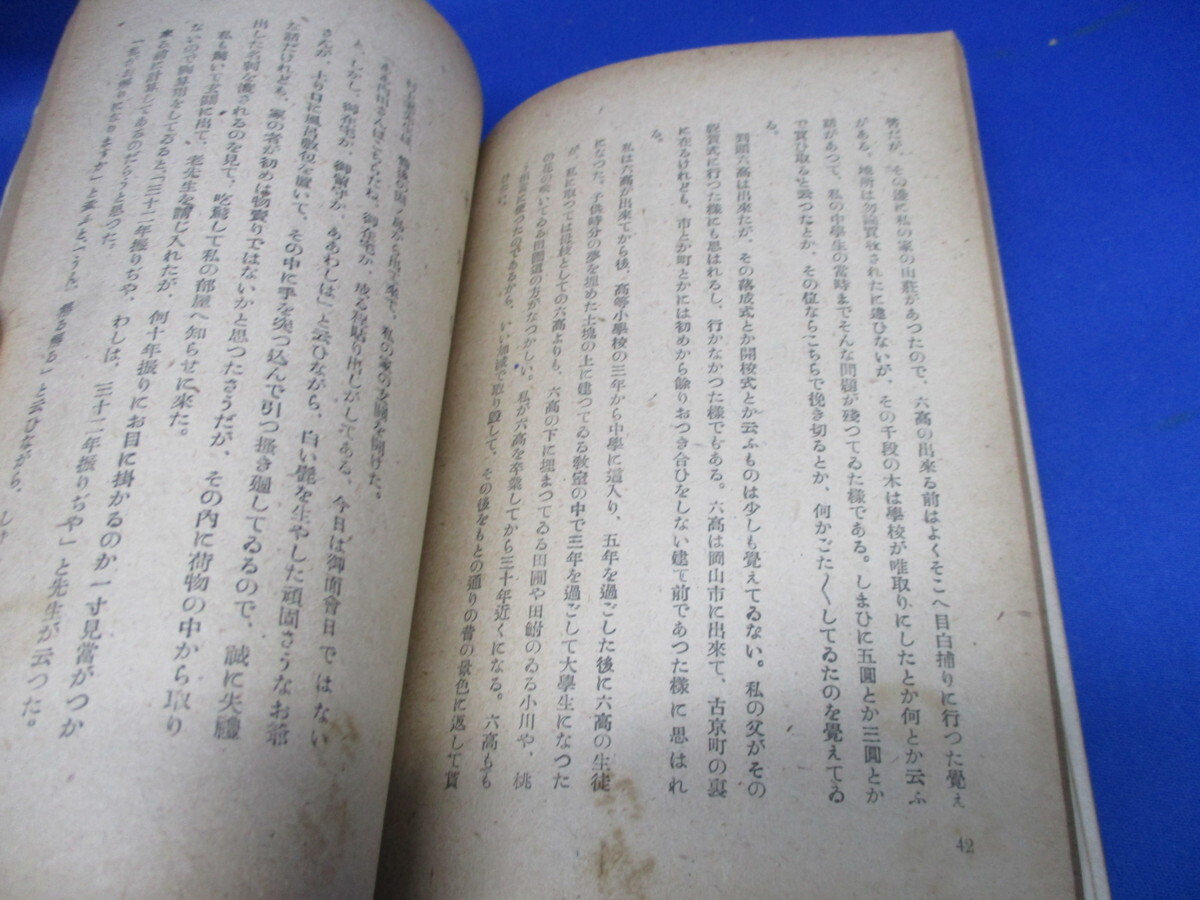 その邊に私の家の山莊があつたので、六高の出來る前はよくそこへ目白捕りに行つた覺え
がある。地所は勿論買收されたに違ひないが、その千段の木は學校が唯取りにしたとか何とか云ふ
話があつて、私の中學生の當時までそんな問題が殘つてゐた樣である。しまひに五圓とか三圓とか
で買ひ取ると云つたとか、その位ならこちらで拔き切るとか、何かごた〱してゐたのを覺えてゐ
る。
六高は出來たが、その落成式とか開校式とか云ふものは少しも覺えてゐない。私の父がその
祝賀式に行つた樣にも思はれるし、行かなかつた樣でもある。六高は岡山市に出來て、古京町の裏
に在るけれども、市とか町とかには初めから餘りおつき合ひをしない建て前であつた樣に思はれ
る。
私は六高が出來てから後、高等小學校の三年から中學に這入り、五年を過ごした後に六高の生徒
になつた。子供時分の夢を埋めた土塊の上に建つてゐる敎室の中で三年を過ごして大學生になつた
が、私に取つては母校としての六高よりも、六高の下に埋まつてゐる田圃や田鮒のゐる小川や、桃
の花の咲いてゐる田圃道の方がなつかしい。私が六高を卒業してから三十年近くになる。六高もも
う古くなつたのであるから、いい加減で取り毀して、その後をもとの通りの昔の景色に返して貰
42
から出て來て、私の家の玄關を開けた。
さんはこちらだね、御在宅か、
しかし、御在宅か、御留守か、ああわしは」と云ひながら、白い髭を生やした頑固さうなお爺
さんが、上り口に風呂敷包を置いて、その中に手を突つ込んで引つ搔き廻してゐるので、誠に失禮
な話だけれども、家の者が初めは物賣りではないかと思つたさうだが、その内に荷物の中から取り
出した名刺を渡されるのを見て、吃驚して私の部屋へ知らせに來た。
私も驚いて玄關に出て、老先生を請じ入れたが、何十年振りにお目に掛かるのか一寸見當がつか
ないので御挨拶をしてゐると「三十二年振りぢや、わしは、三十二年振りぢや」と先生が云つた。
前に計算してあるのだらうと思つた。